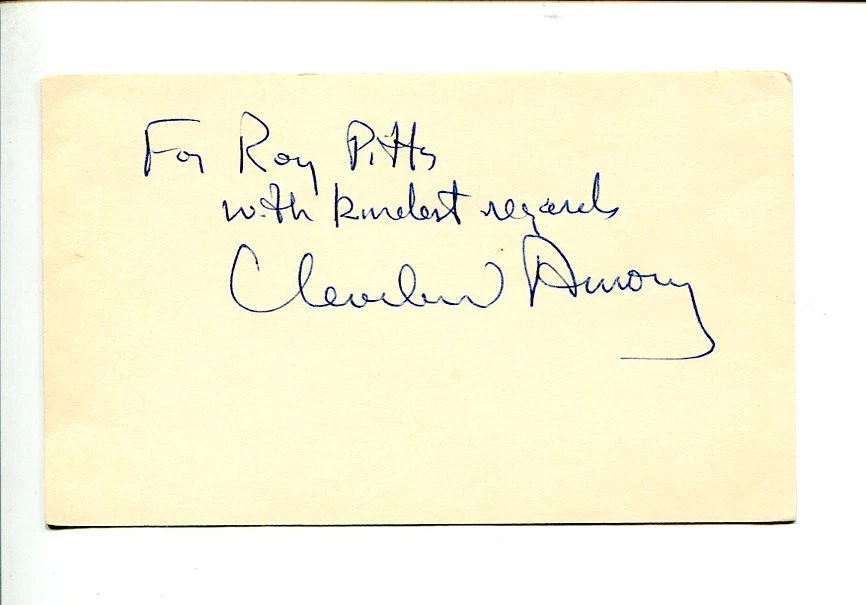 For Roy Pitts
with kindest regards
Cleveland Amory